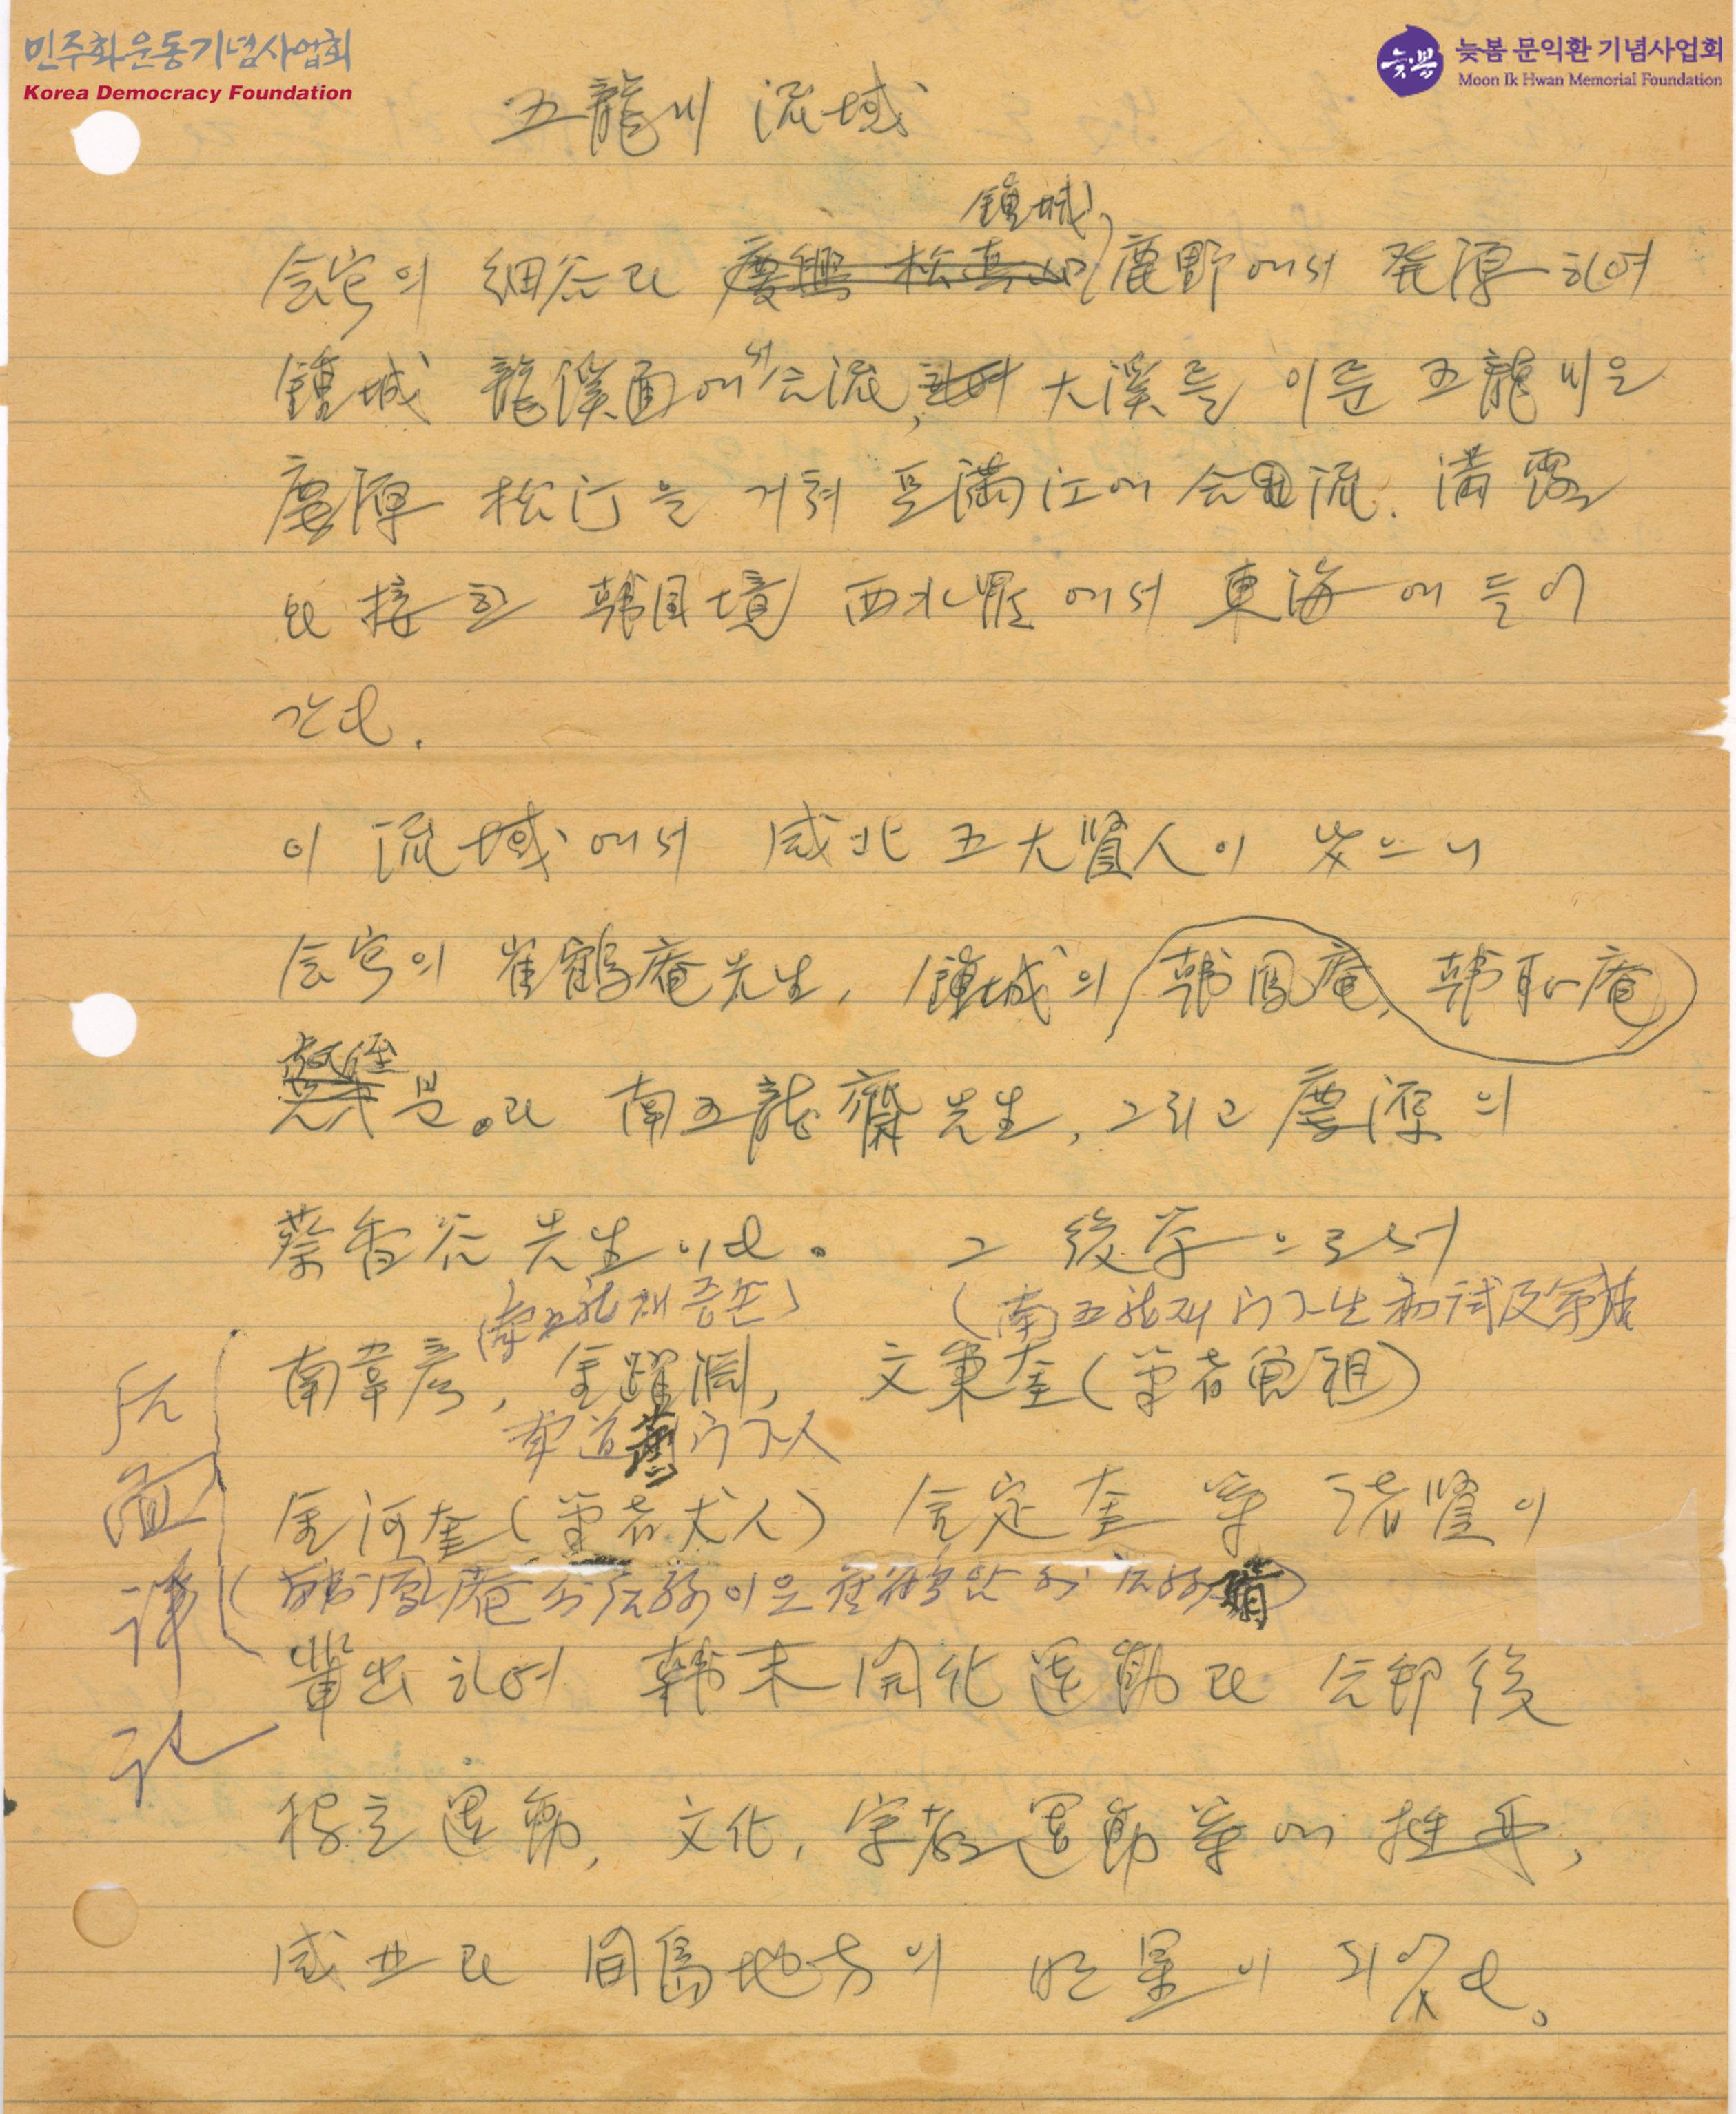 민주화운동기념사업회
Korea Democracy Foundation
늦봄
늦봄 문익환 기념사업회
Moon Ik Hwan Memorial Foundation
五龍川 流域
鍾城,
会寧의 細谷과 慶興 鹿野에서 発源하여
鍾城 龍溪面에서 会流, 하여 大溪를 이룬 五龍川은
慶源 松汀을 거쳐 豆滿江에 会流. 満露
와 接한 韓国境 西水羅에서 東海에 들어
간다.
이 流域에서 咸北 五大賢人이 났으니
会寧의 崔鶴庵先生, 鍾城의 韓鳳庵, 韓恥庵
분과 南五龍齋先生, 그리고 慶源의
蔡香谷先生이다. 그 後学으로서
(南五龍재 증손)
(南五龍재 门下生 初試及第
南葦彦, 金躍淵, 文秉奎(筆者曾祖)
南道 门下人
金河奎(筆者丈人) 金定奎 等 諸賢이
(韓鳳庵
輩出하여 韓末 開化運動과 合邦後
独立運動, 文化, 宗教運動等에 挺身,
咸北과 间島地方의 明星이 되었다.
后面